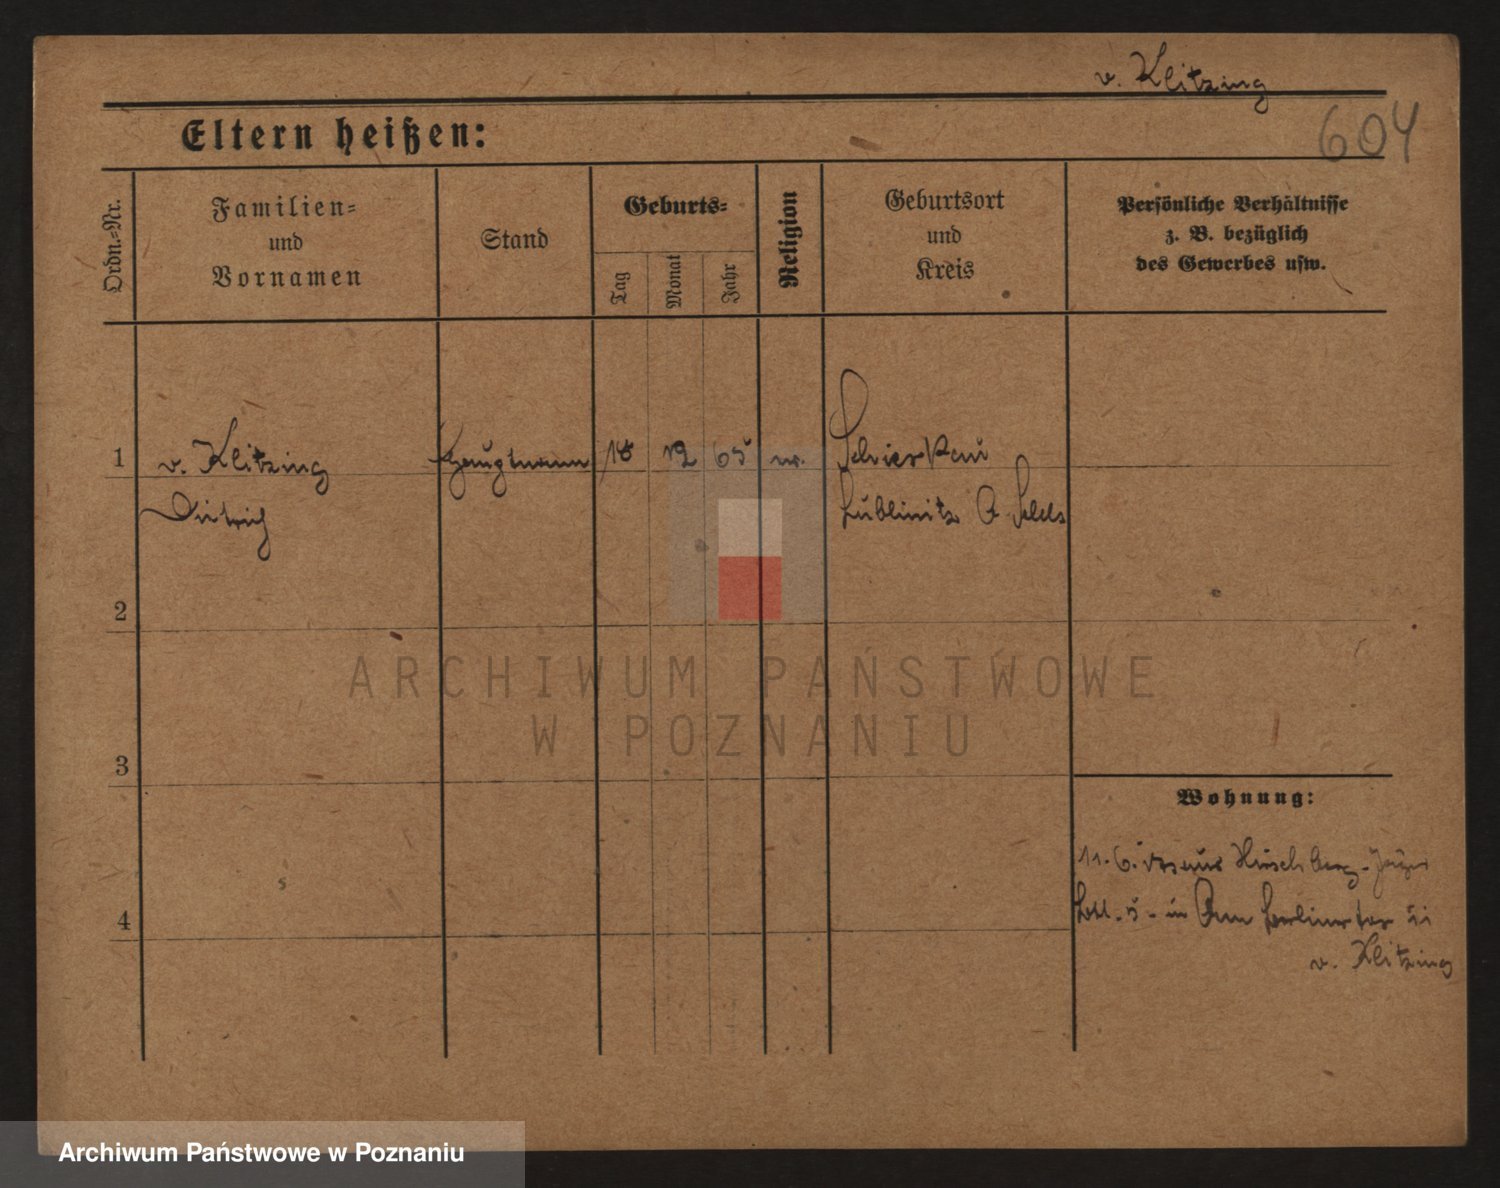 v. Klitzing
604
Eltern heißen:
Ordn.-Nr.
Familien-
und
Vornamen
Stand
Geburts-
Tag
Monat
Jahr
Religion
Geburtsort
und
Kreis
Persönliche Verhältnisse
z. B. bezüglich
des Gewerbes usw.
1 v. Klitzing Hauptmann 18 12 65
Dietrich Lublinitz
2
3
4
Wohnung:
11. 6. aus Hirschberg - Jäger
Batl. 5 - in Am Berlinertor bei
v. Klitzing
ARCHIWUM PAŃSTWOWE
W POZNANIU
Archiwum Państwowe w Poznaniu